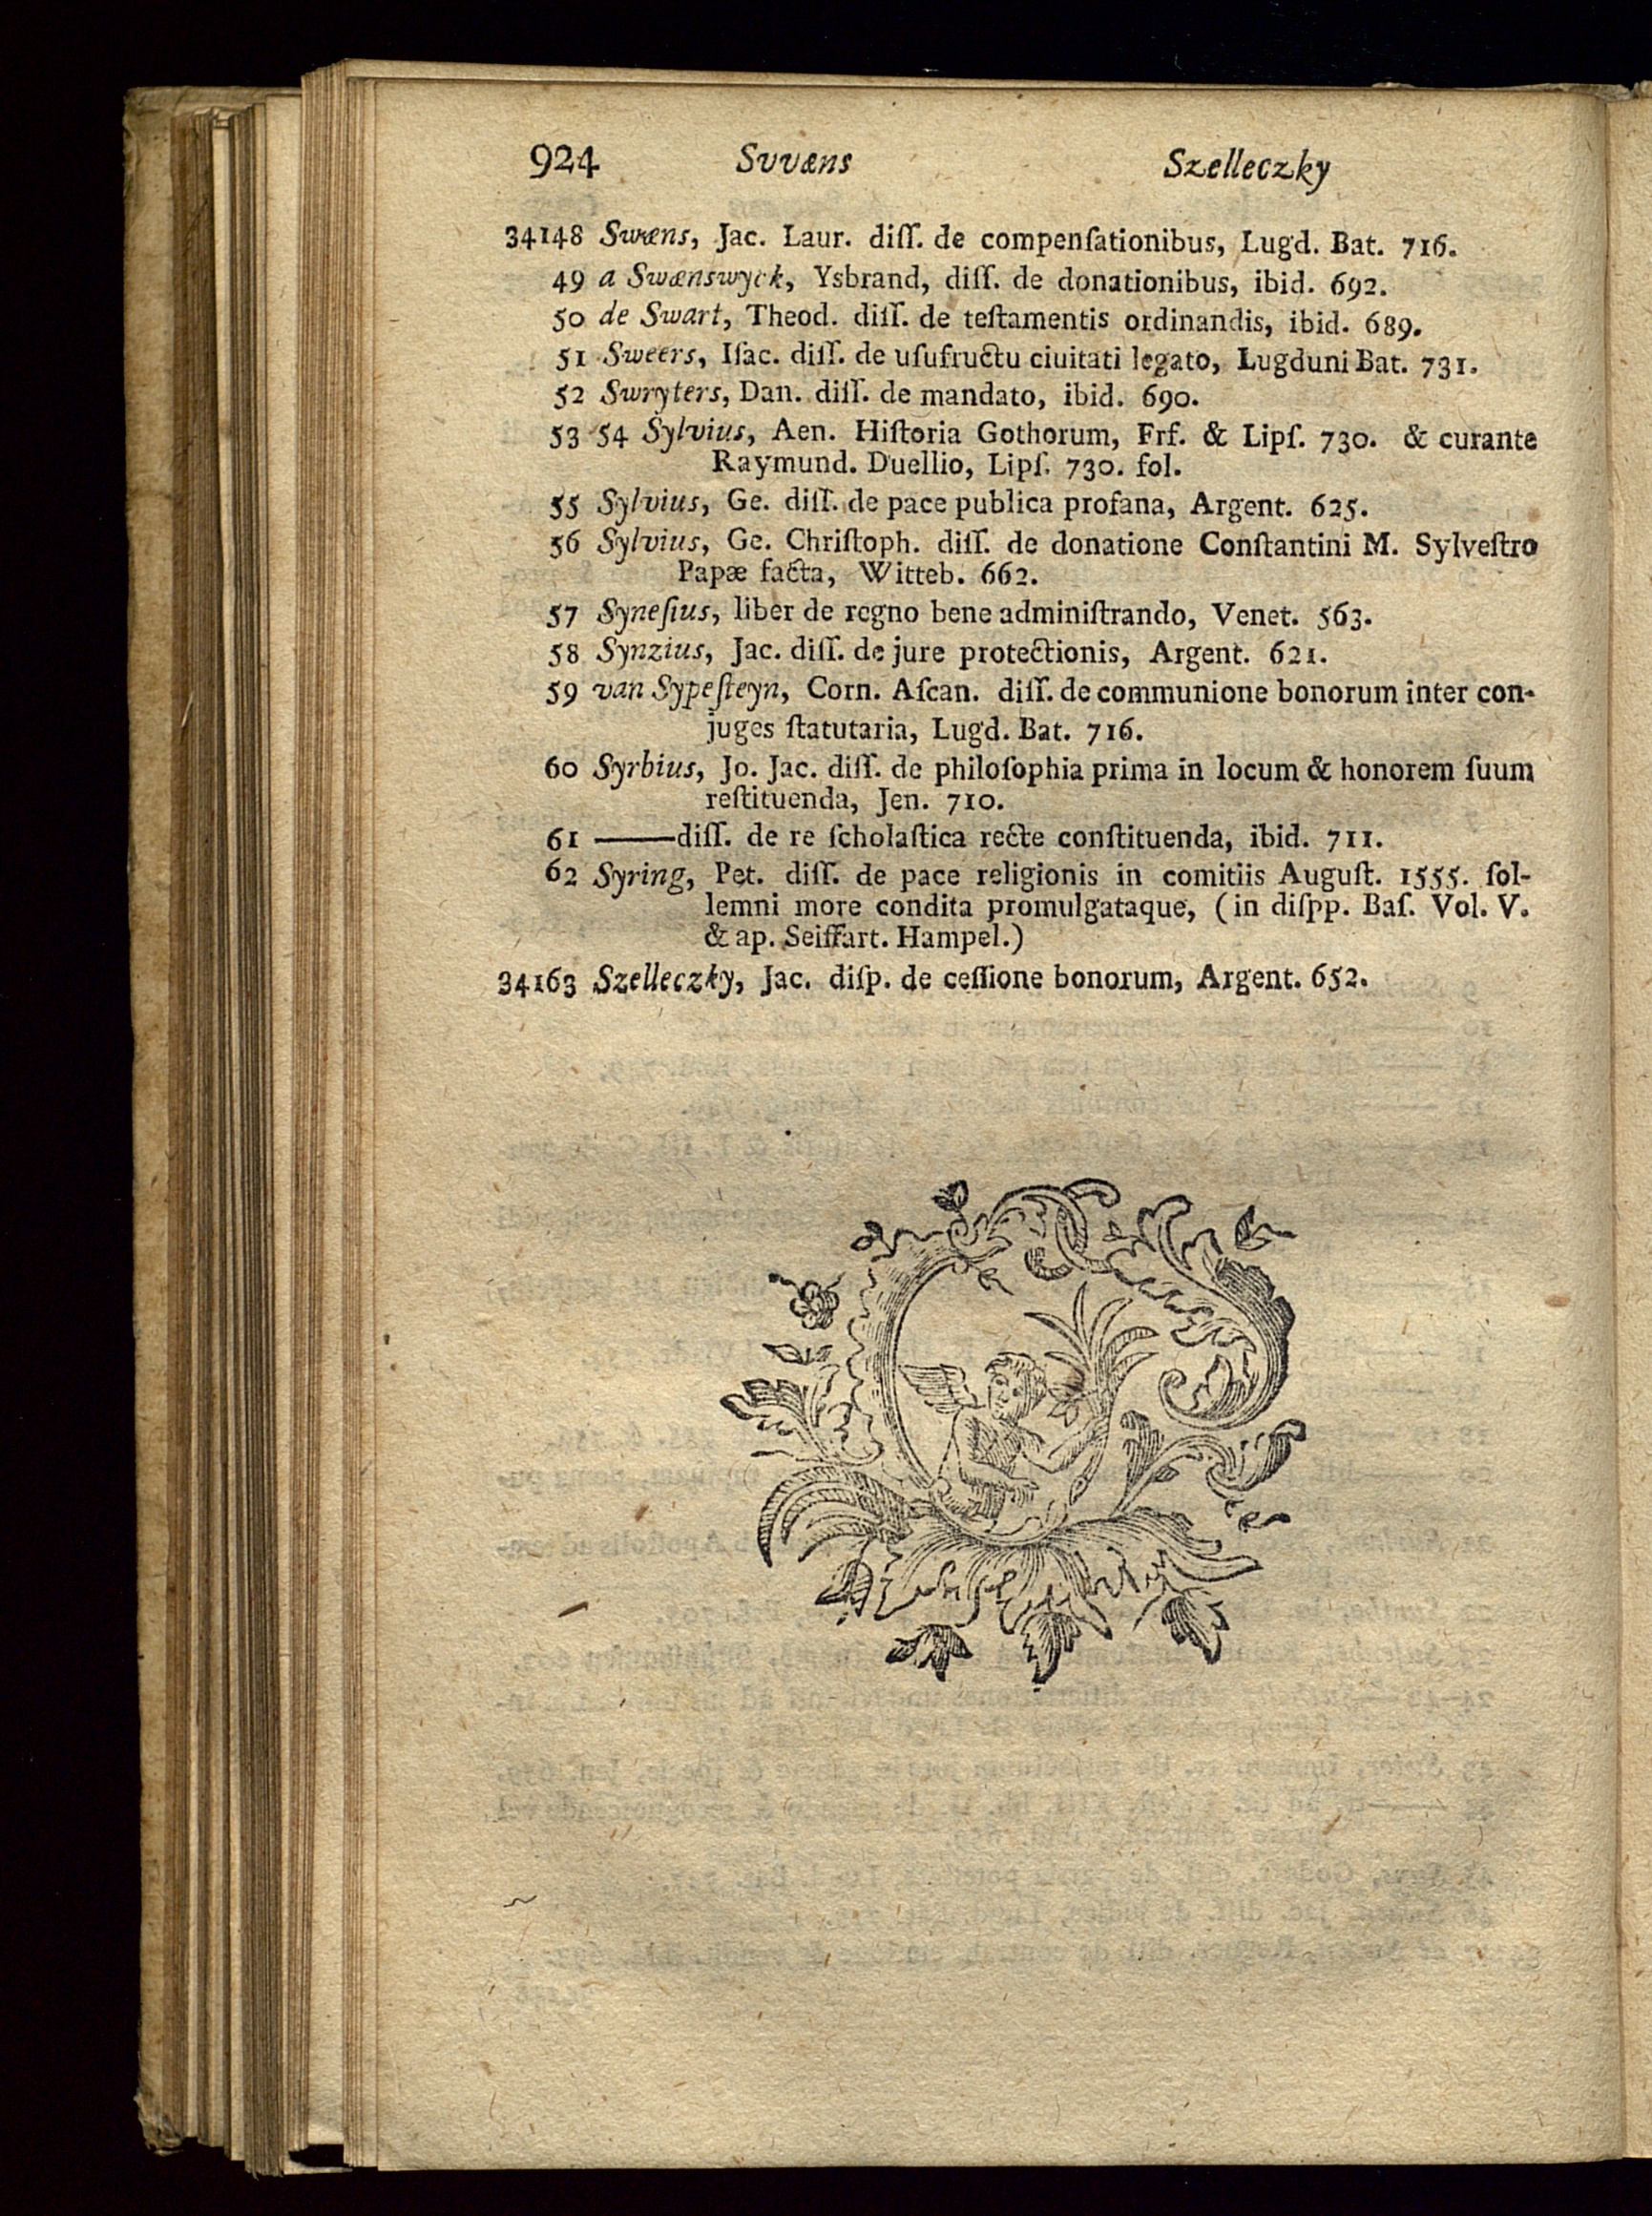 924 Svvæns Szelleczky
34148 Swæns, Jac. Laur. diſſ. de compenſationibus, Lugd. Bat. 716.
49 a Swænswyck, Ysbrand, diſſ. de donationibus, ibid. 692.
50 de Swart, Theod. diſſ. de teſtamentis ordinandis, ibid. 689.
51 Sweers, Iſac. diſſ. de uſufructu ciuitati legato, Lugduni Bat. 731.
52 Swryters, Dan. diſſ. de mandato, ibid. 690.
53 54 Sylvius, Aen. Hiſtoria Gothorum, Frf. & Lipſ. 730. & curante
Raymund. Duellio, Lipſ. 730. fol.
55 Sylvius, Ge. diſſ. de pace publica profana, Argent. 625.
56 Sylvius, Ge. Chriſtoph. diſſ. de donatione Conſtantini M. Sylveſtro
Papæ facta, Witteb. 662.
57 Syneſius, liber de regno bene adminiſtrando, Venet. 563.
58 Synzius, Jac. diſſ. de jure protectionis, Argent. 621.
59 van Sypeſteyn, Corn. Aſcan. diſſ. de communione bonorum inter con-
juges ſtatutaria, Lugd. Bat. 716.
60 Syrbius, Jo. Jac. diſſ. de philoſophia prima in locum & honorem ſuum
reſtituenda, Jen. 710.
61 ——diſſ. de re ſcholaſtica recte conſtituenda, ibid. 711.
62 Syring, Pet. diſſ. de pace religionis in comitiis Auguſt. 1555. ſol-
lemni more condita promulgataque, (in diſpp. Baſ. Vol. V.
& ap. Seiffart. Hampel.)
34163 Szelleczky, Jac. diſp. de ceſſione bonorum, Argent. 652.